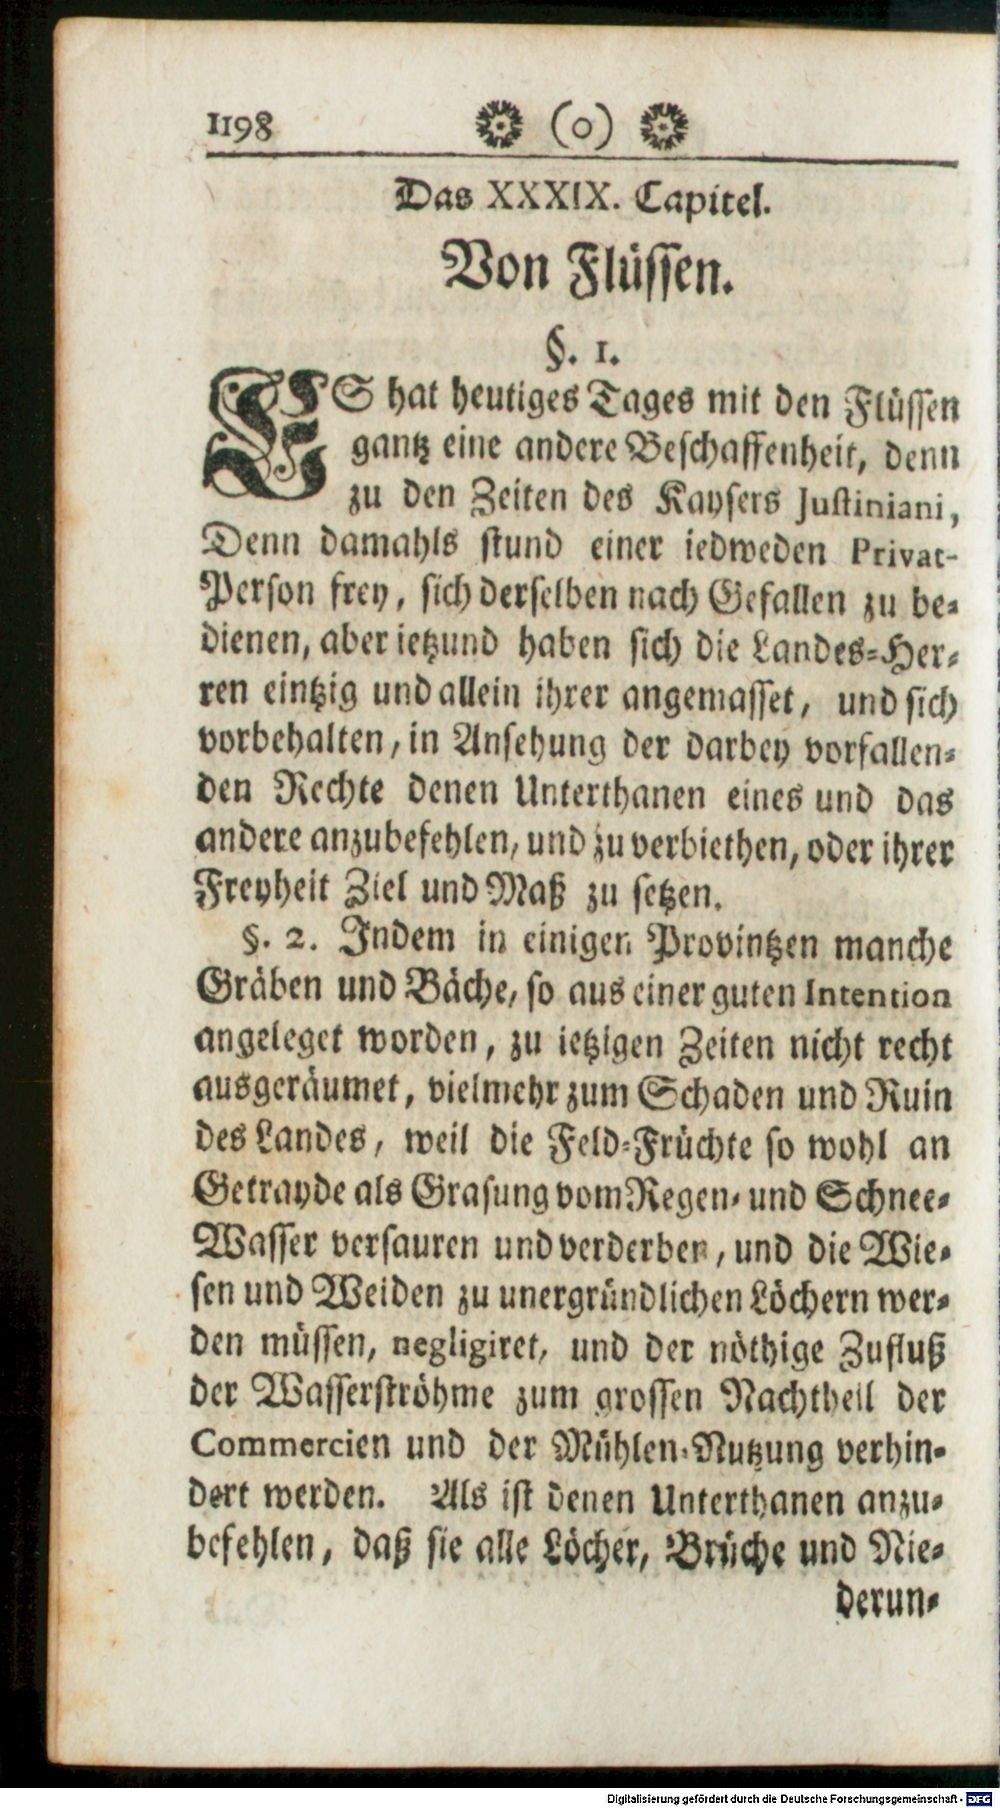 1198 (o)
Das XXXIX. Capitel.
Von Flüssen.
§. 1.
ES hat heutiges Tages mit den Flüssen
gantz eine andere Beschaffenheit, denn
zu den Zeiten des Kaysers Justiniani,
Denn damahls stund einer iedweden Privat-
Person frey, sich derselben nach Gefallen zu be-
dienen, aber ietzund haben sich die Landes-Her-
ren eintzig und allein ihrer angemasset, und sich
vorbehalten, in Ansehung der darbey vorfallen-
den Rechte denen Unterthanen eines und das
andere anzubefehlen, und zu verbiethen, oder ihrer
Freyheit Ziel und Maß zu setzen.
§. 2. Indem in einigen Provintzen manche
Gräben und Bäche, so aus einer guten Intention
angeleget worden, zu ietzigen Zeiten nicht recht
ausgeräumet, vielmehr zum Schaden und Ruin
des Landes, weil die Feld-Früchte so wohl an
Getrayde als Grasung vom Regen- und Schnee-
Wasser versauren und verderben, und die Wie-
sen und Weiden zu unergründlichen Löchern wer-
den müssen, negligiret, und der nöthige Zufluß
der Wasserströhme zum grossen Nachtheil der
Commercien und der Mühlen-Nutzung verhin-
dert werden. Als ist denen Unterthanen anzu-
befehlen, daß sie alle Löcher, Brüche und Nie-
derun-
Digitalisierung gefördert durch die Deutsche Forschungsgemeinschaft - DFG